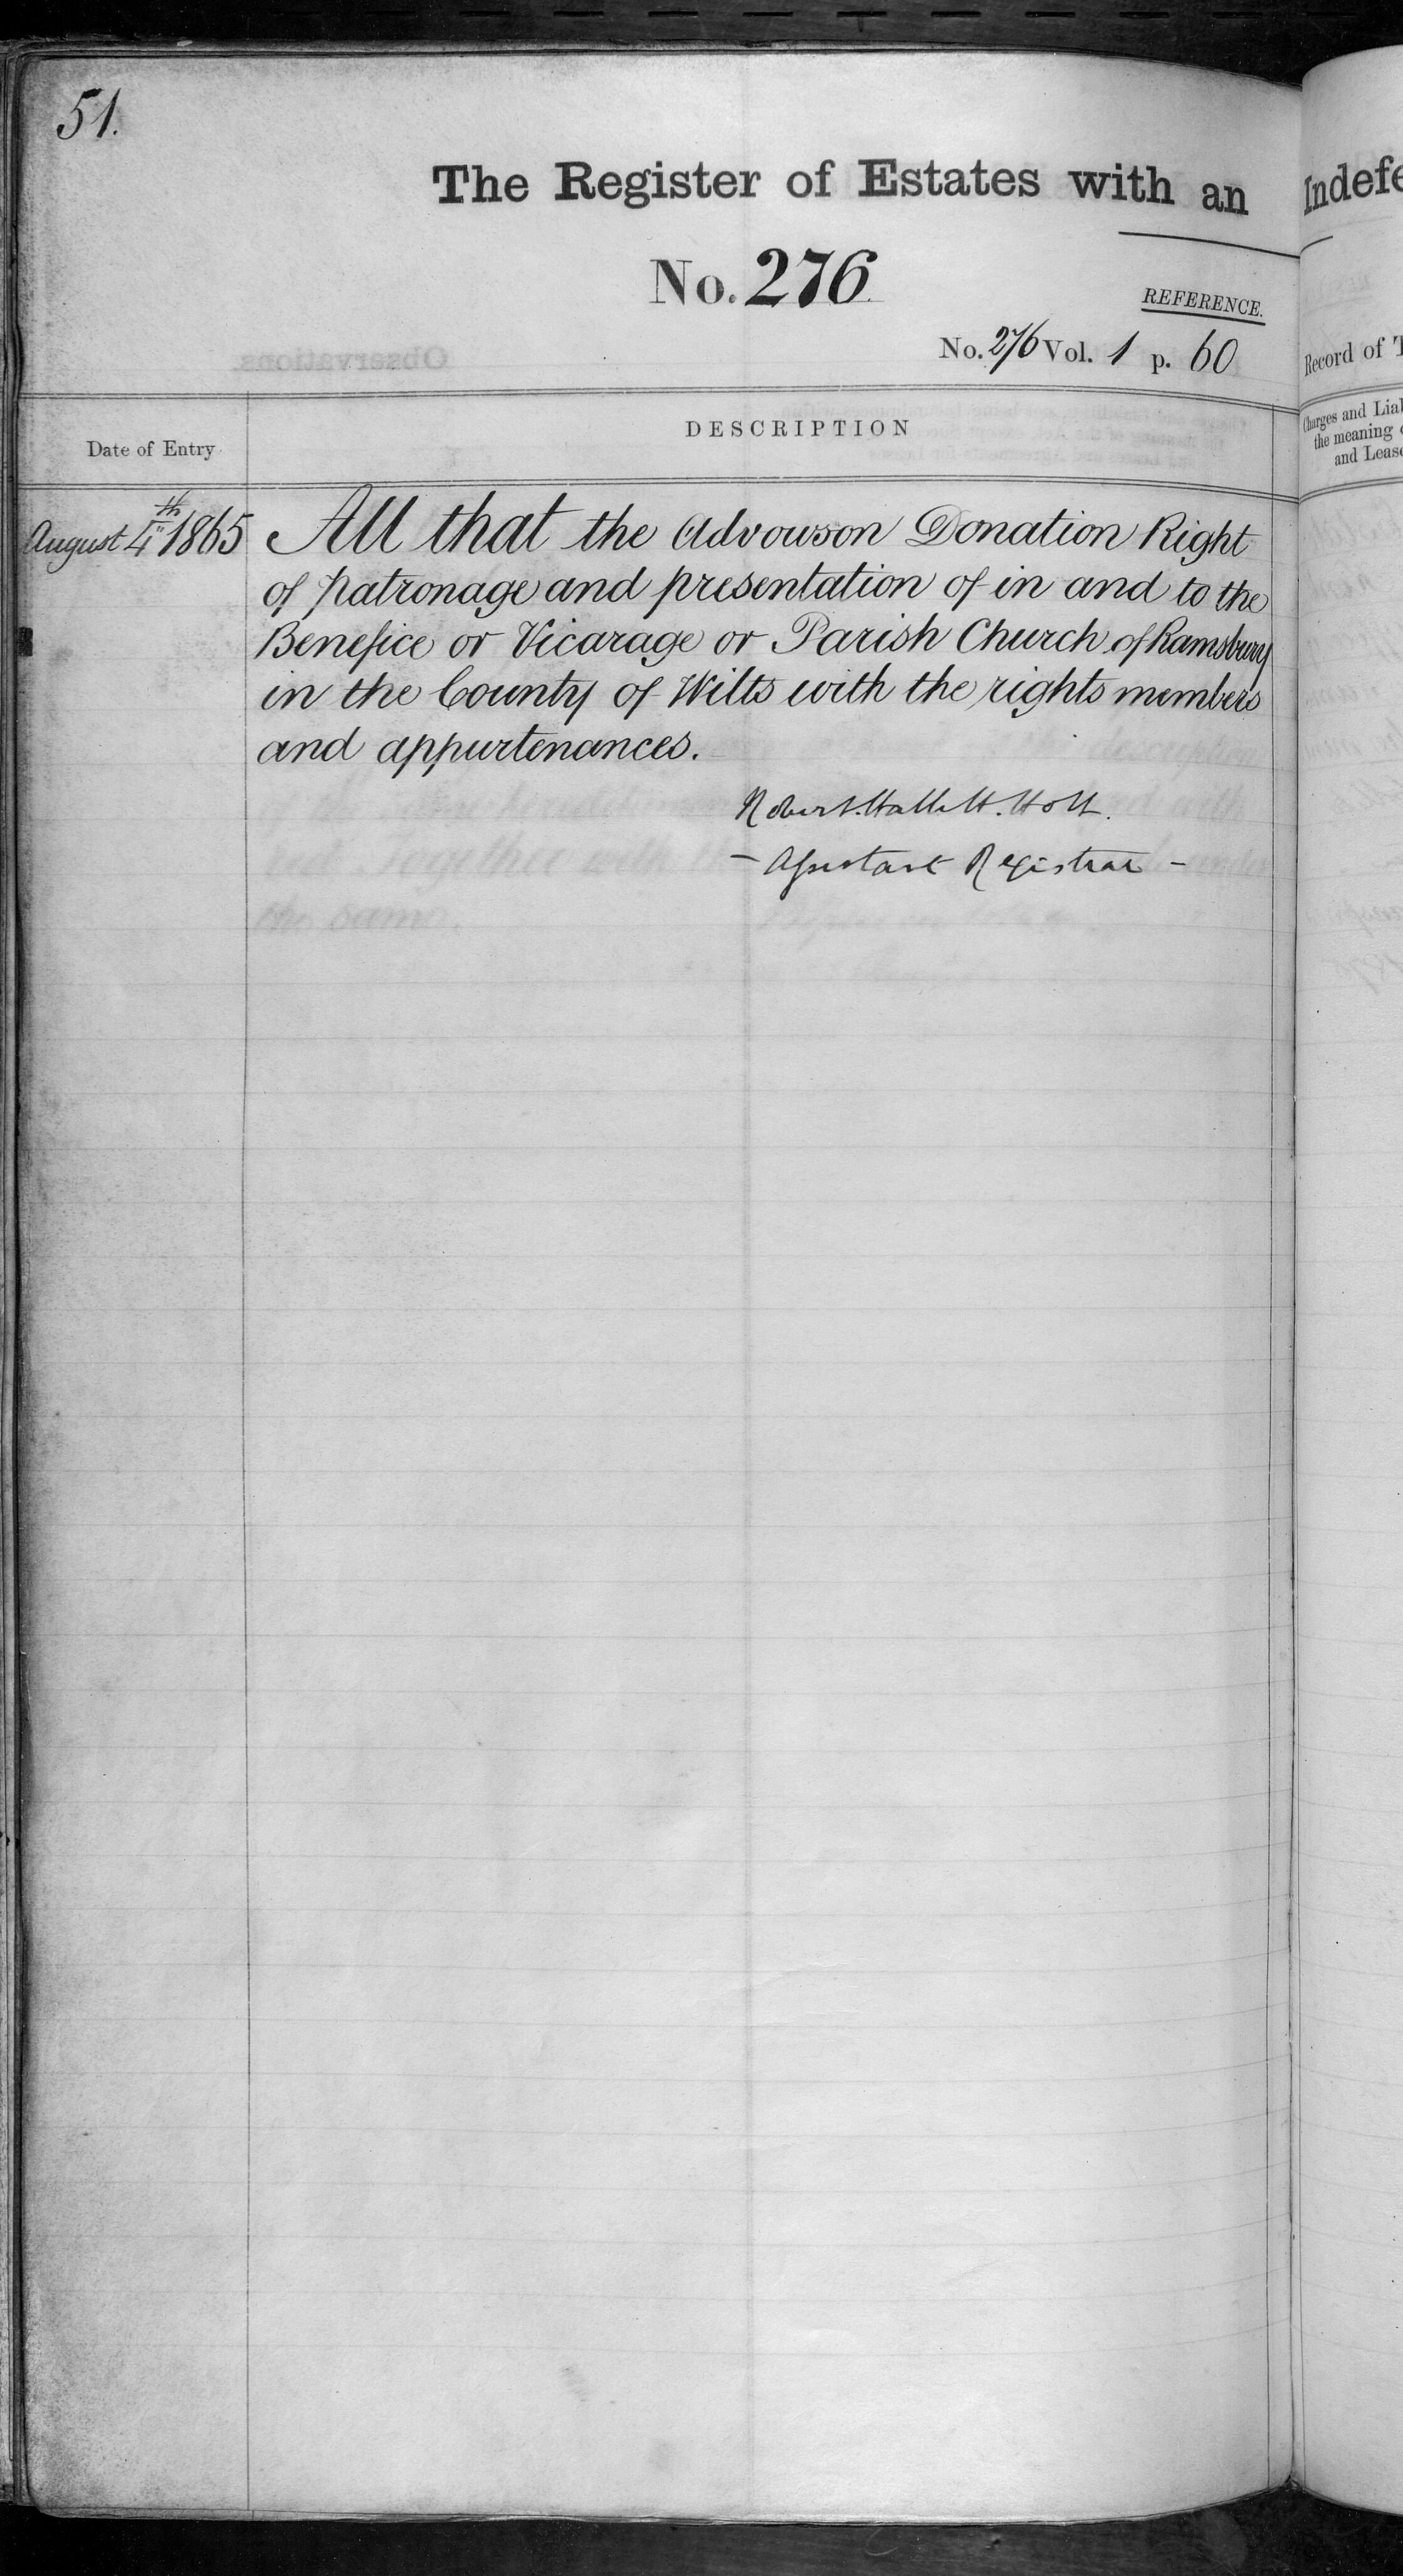 51.
The Register of Estates with an Indefe
No. 276.
REFERENCE.
No. 276 Vol. 1 p. 60
Record of T
Date of Entry
DESCRIPTION
Charges and Lial
the meaning
and Lease
August 4th 1865
All that the Advowson Donation Right
of patronage and presentation of in and to the
Benefice or Vicarage or Parish Church of Ramsbury
in the County of Wilts with the rights members
and appurtenances.
Robert. Hallett. Holt.
- Assistant Registrar -
Observations.